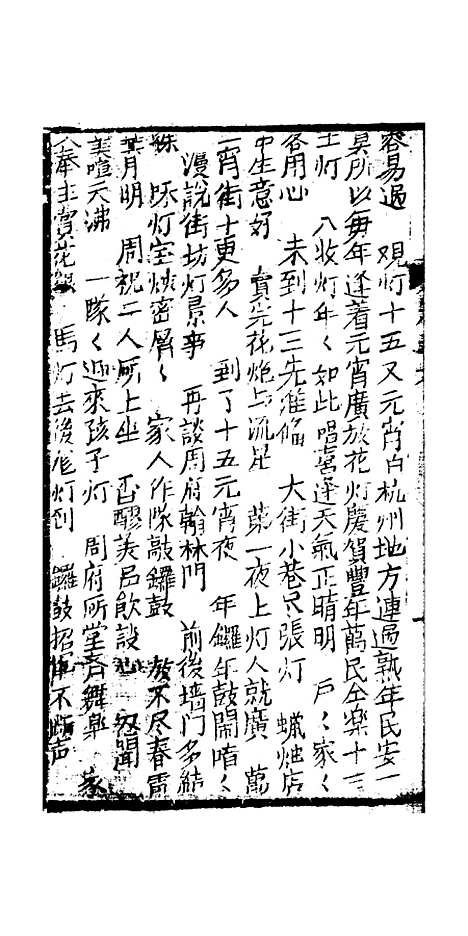 容易過　观灯十五又元宵白杭州地方連過熟年民安一
莫所以每年逢着元宵廣放花灯慶賀豐年萬民仝楽十三
上灯　八收灯年〻如此唱喜逢天氣正晴明　戶〻家〻
各用心　未到十三先准俻　大街小巷尽張灯　蠟烛店
中生意好　賣完花炮与流星　第一夜上灯人就廣　萬
一宵街士更多人　到了十五元宵夜　年鑼年鼓鬧喑〻
漫說街坊灯景事　再談周府翰林門　前後墻門多結
綵　灯室燦密層〻　家人作隊敲鑼鼓　放不尽春雷
華月明　周祝二人所上坐　香醪美品飲談心　忽聞
喧天沸　一隊〻迎來孩子灯　周府所堂齐舞  　家
主賞花銀　馬灯去後灯到　鑼鼓招不断声